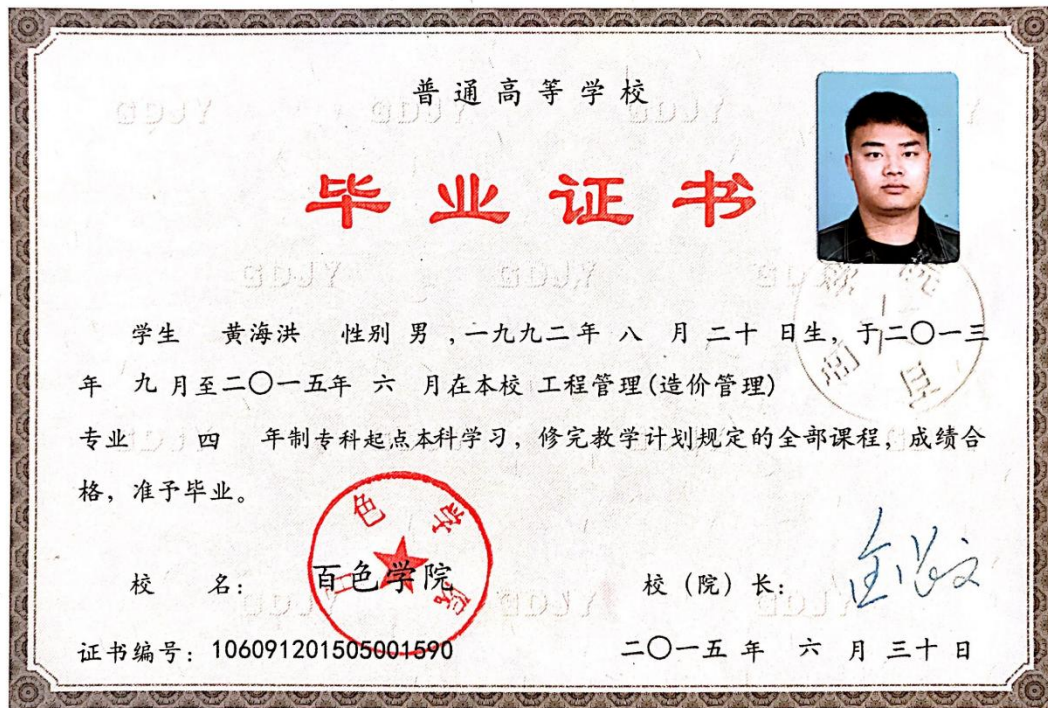 普通高等学校
毕业证书
学生 黄海洪 性别 男 ,一九九二年 八 月 二十 日生, 于二〇一三
年 九 月至二〇一五年 六 月在本校 工程管理(造价管理)
专业 四 年制专科起点本科学习, 修完教学计划规定的全部课程, 成绩合
格, 准予毕业。
百色学院
校 名: 百色学院 校 (院) 长:
证书编号: 106091201505001590 二〇一五 年 六 月 三十 日